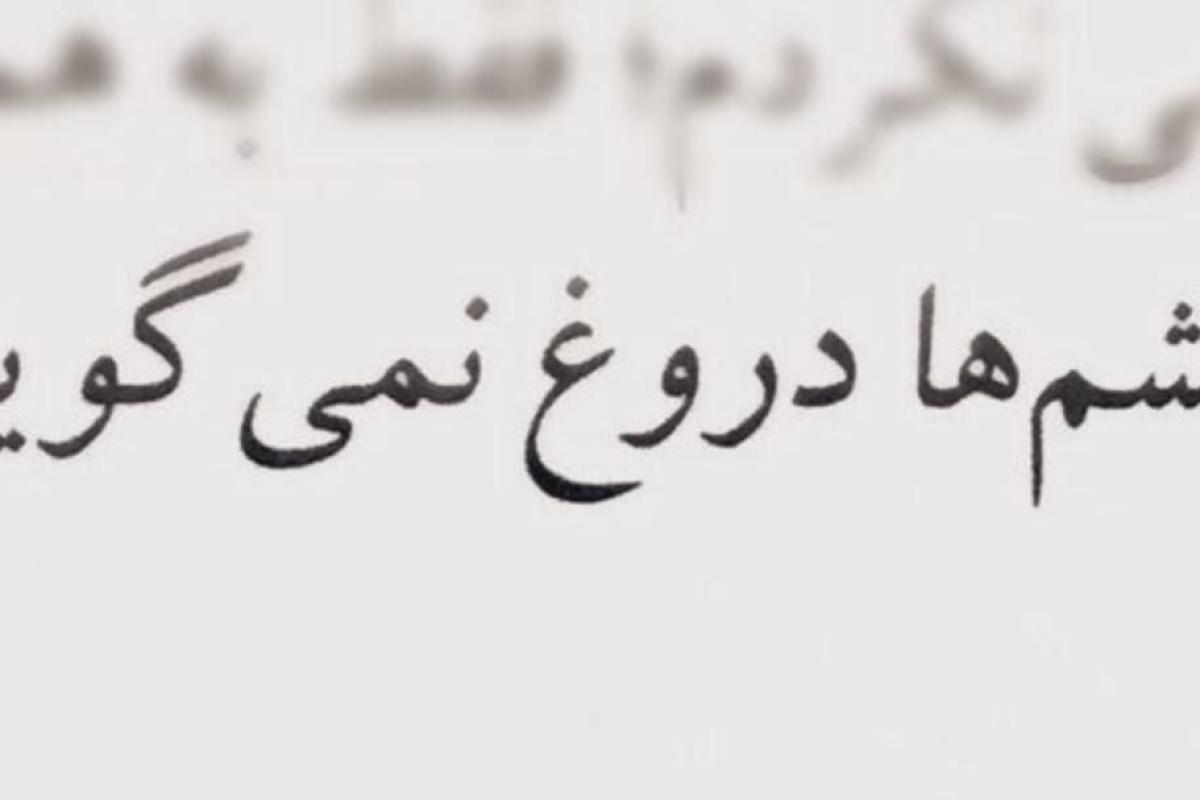 نکردم، فقط به
شم‌ها دروغ نمی‌گوی